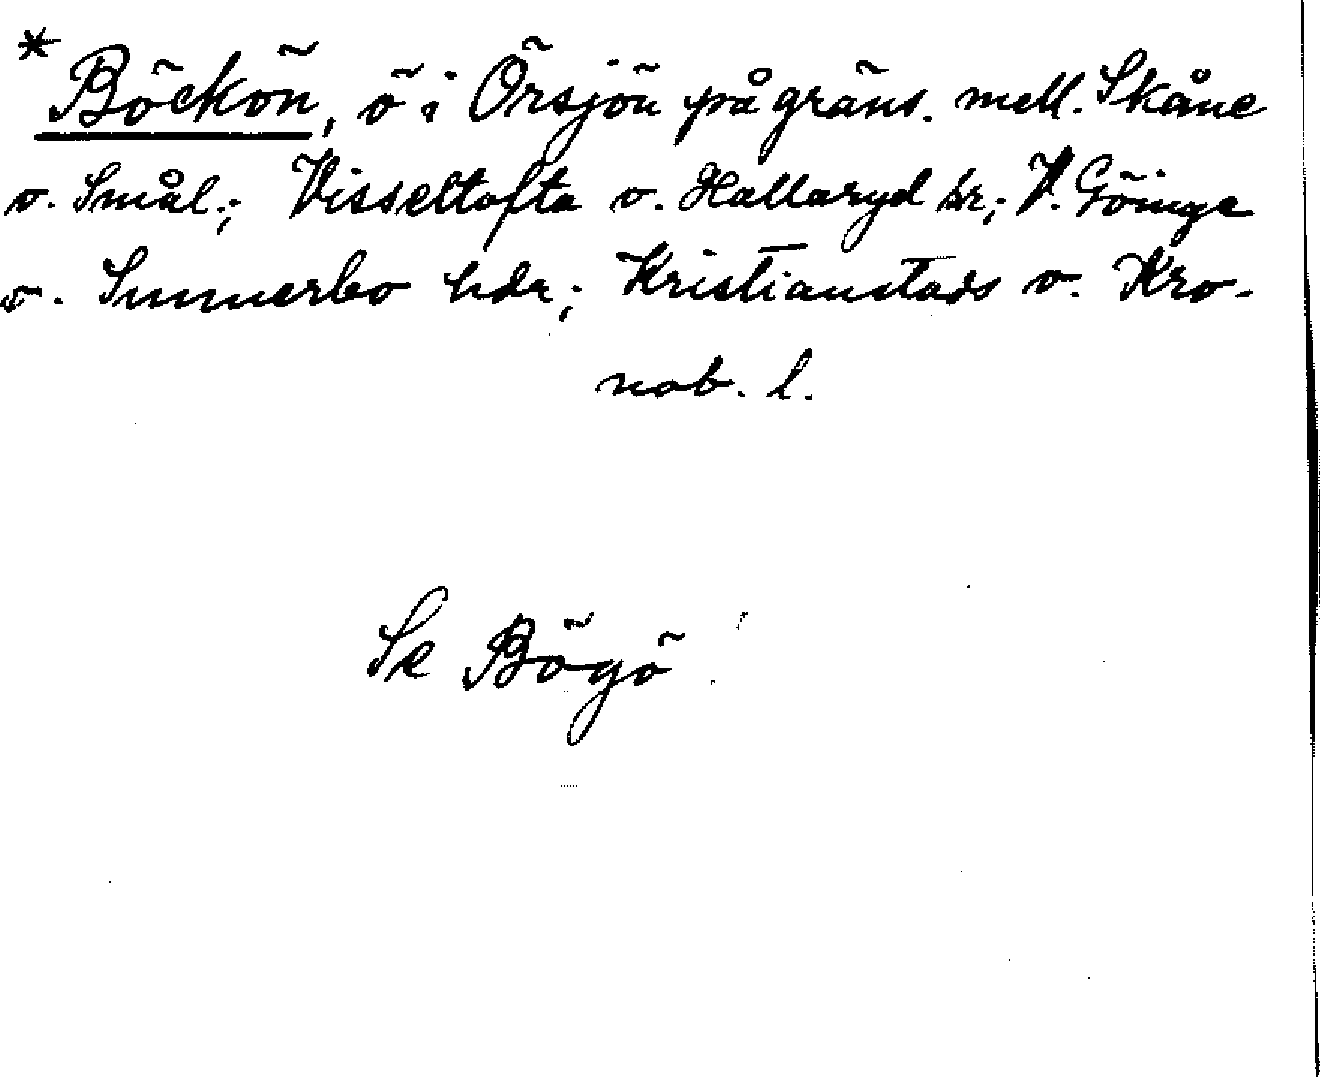 * Böckön, ö i Örsjön på gräns. mell. Skåne
o. Smål.; Visseltofta o. Hallaryd sr; V. Göinge
o. Sunnerbo hdr; Kristianstads o. Kro-
nob. l.
Se Bögö